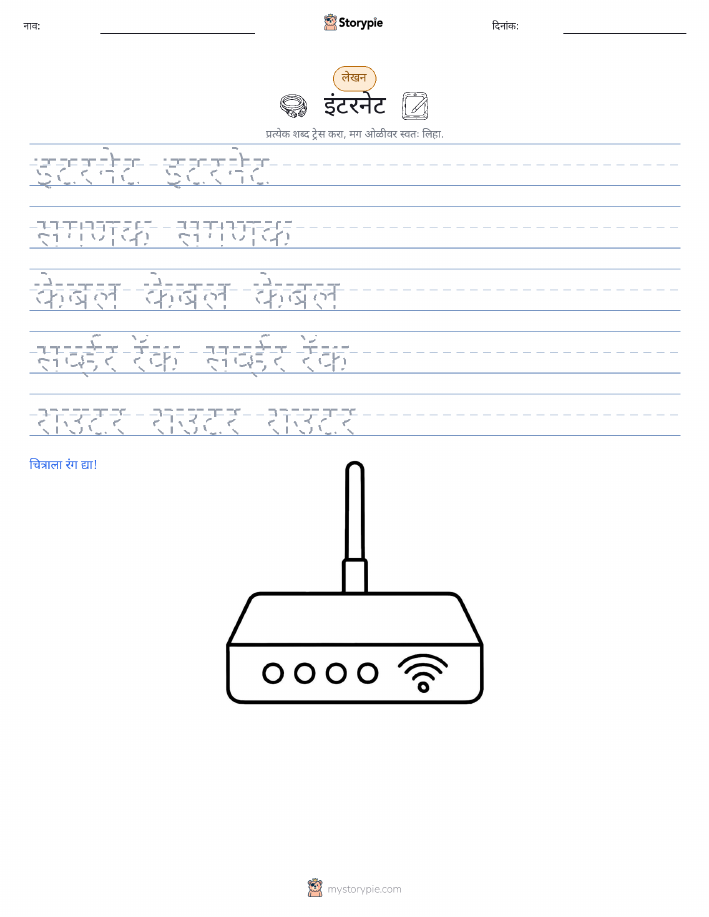 नाव:
Storypie
दिनांक:
लेखन
इंटरनेट
प्रत्येक शब्द ट्रेस करा, मग ओळीवर स्वतः लिहा.
इंटरनेट इंटरनेट
संगणक संगणक
केबल केबल केबल
सर्व्हर रॅक सर्व्हर रॅक
राउटर राउटर राउटर
चित्राला रंग द्या!
mystorypie.com